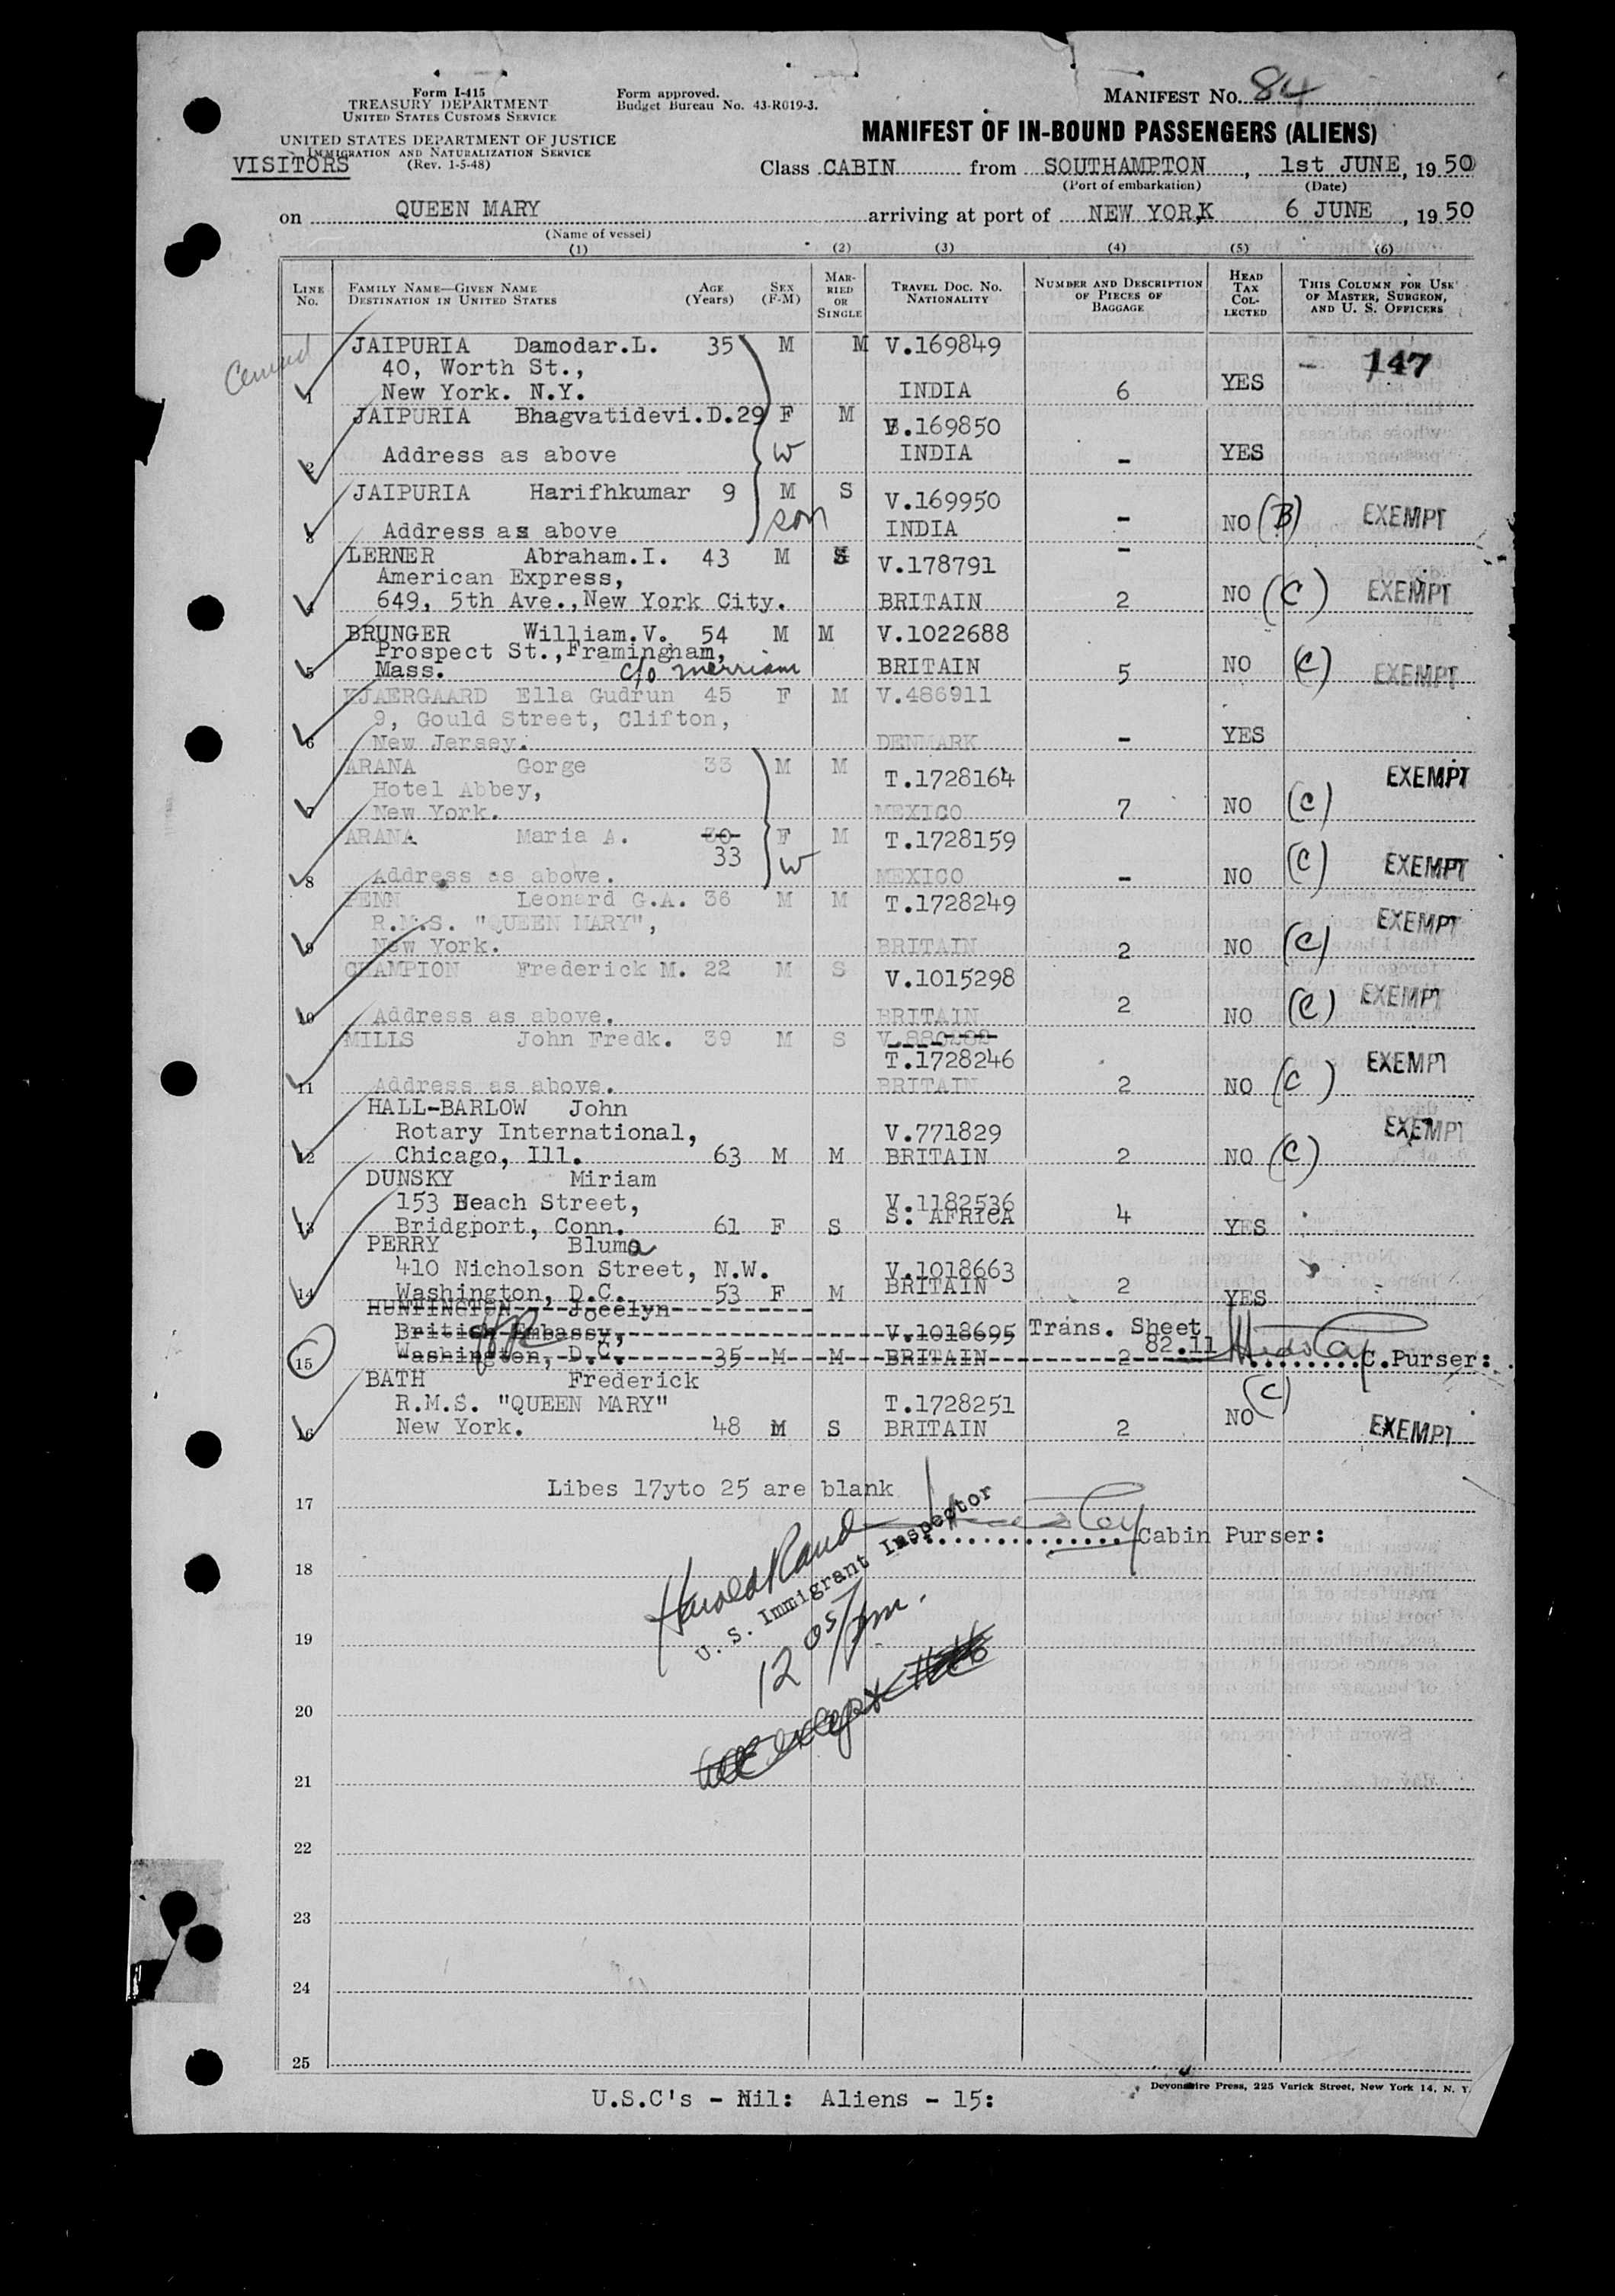 Form I-415
TREASURY DEPARTMENT
UNITED STATES CUSTOMS SERVICE
UNITED STATES DEPARTMENT OF JUSTICE
IMMIGRATION AND NATURALIZATION SERVICE
(Rev. 1-5-48)
VISITORS
Form approved.
Budget Bureau No. 43-R019-3.
MANIFEST NO. 84
MANIFEST OF IN-BOUND PASSENGERS (ALIENS)
Class CABIN from SOUTHAMPTON, 1st JUNE, 1950
(Port of embarkation) (Date)
on QUEEN MARY arriving at port of NEW YORK 6 JUNE, 1950
(Name of vessel)
(1) (2) (3) (4) (5) (6)
LINE No. FAMILY NAME—GIVEN NAME DESTINATION IN UNITED STATES AGE (Years) SEX (F-M) MARRIED OR SINGLE TRAVEL DOC. NO. NATIONALITY NUMBER AND DESCRIPTION OF PIECES OF BAGGAGE HEAD TAX COLLECTED THIS COLUMN FOR USE OF MASTER, SURGEON, AND U. S. OFFICERS
JAIPURIA Damodar.L. 35 M M V.169849
40, Worth St., - 147
1 New York. N.Y. INDIA 6 YES
JAIPURIA Bhagvatidevi.D.29 F M V.169850
2 Address as above W INDIA - YES
JAIPURIA Harifhkumar 9 M S V.169950
3 Address as above son INDIA - NO (B) EXEMPT
LERNER Abraham.I. 43 M V.178791 -
American Express,
4 649, 5th Ave.,New York City. BRITAIN 2 NO (C) EXEMPT
BRUNGER William.V. 54 M M V.1022688
Prospect St.,Framingham,
5 Mass. c/o Merriam BRITAIN 5 NO (C) EXEMPT
KJAERGAARD Ella Gudrun 45 F M V.486911
9, Gould Street, Clifton,
6 New Jersey. DENMARK - YES
ARANA Gorge 33 M M T.1728164 EXEMPT
Hotel Abbey,
7 New York. MEXICO 7 NO (C)
ARANA Maria A. 30 F M T.1728159
33 W
8 Address as above. MEXICO - NO (C) EXEMPT
PENN Leonard G.A. 36 M M T.1728249
R.M.S. "QUEEN MARY", EXEMPT
9 New York. BRITAIN 2 NO (C)
CHAMPION Frederick M. 22 M S V.1015298
10 Address as above. BRITAIN 2 NO (C) EXEMPT
MILLS John Fredk. 39 M S
T.1728246 EXEMPT
11 Address as above. BRITAIN 2 NO (C)
HALL-BARLOW John
Rotary International, V.771829 EXEMPT
12 Chicago, Ill. 63 M M BRITAIN 2 NO (C)
DUNSKY Miriam
153 Beach Street, V.1182536
13 Bridgport, Conn. 61 F S S. AFRICA 4 YES
PERRY Bluma
410 Nicholson Street, N.W. V.1018663
14 Washington, D.C. 53 F M BRITAIN 2 YES
HUNTINGTON Jocelyn
British Embassy, V.1018695 Trans. Sheet
15 Washington, D.C. 35 M M BRITAIN 2 82.11 C.Purser:
BATH Frederick
R.M.S. "QUEEN MARY" T.1728251 (C)
16 New York. 48 M S BRITAIN 2 NO EXEMPT
Libes 17yto 25 are blank
17
Cabin Purser:
18
Harold Rand
U. S. Immigrant Inspector
19
12 05/pm.
20
all except
21
22
23
24
25
Devonshire Press, 225 Varick Street, New York 14, N. Y.
U.S.C's - Nil: Aliens - 15: